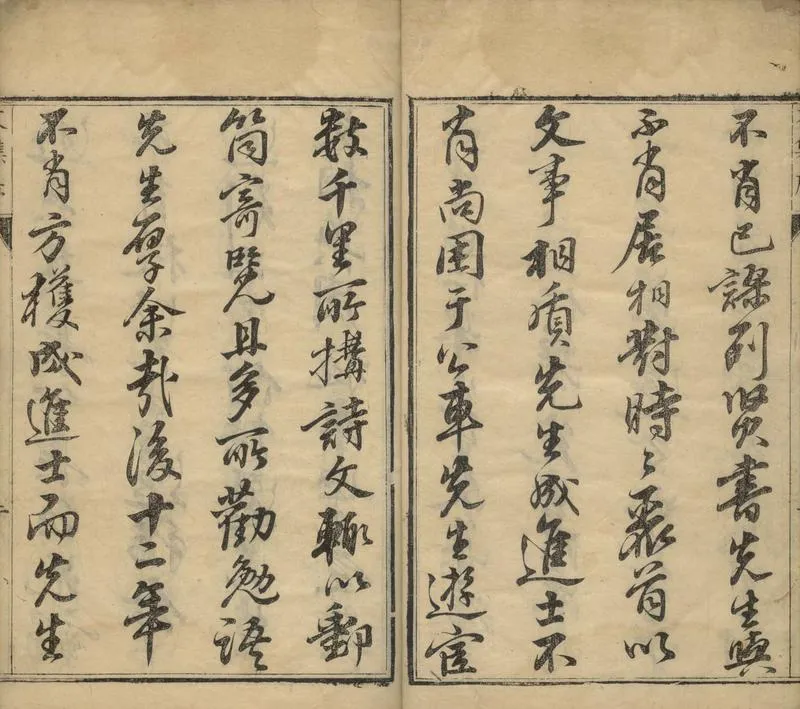 不肖已謬列賢書先生與
不肖居相對時〻聚首以
文事相質先生成進士不
肖尚困于公車先生遊宦
數千里所搆詩文輙以郵
筒寄覽且多所勸勉語
先生厚余哉後十二年
不肖方獲成進士而先生